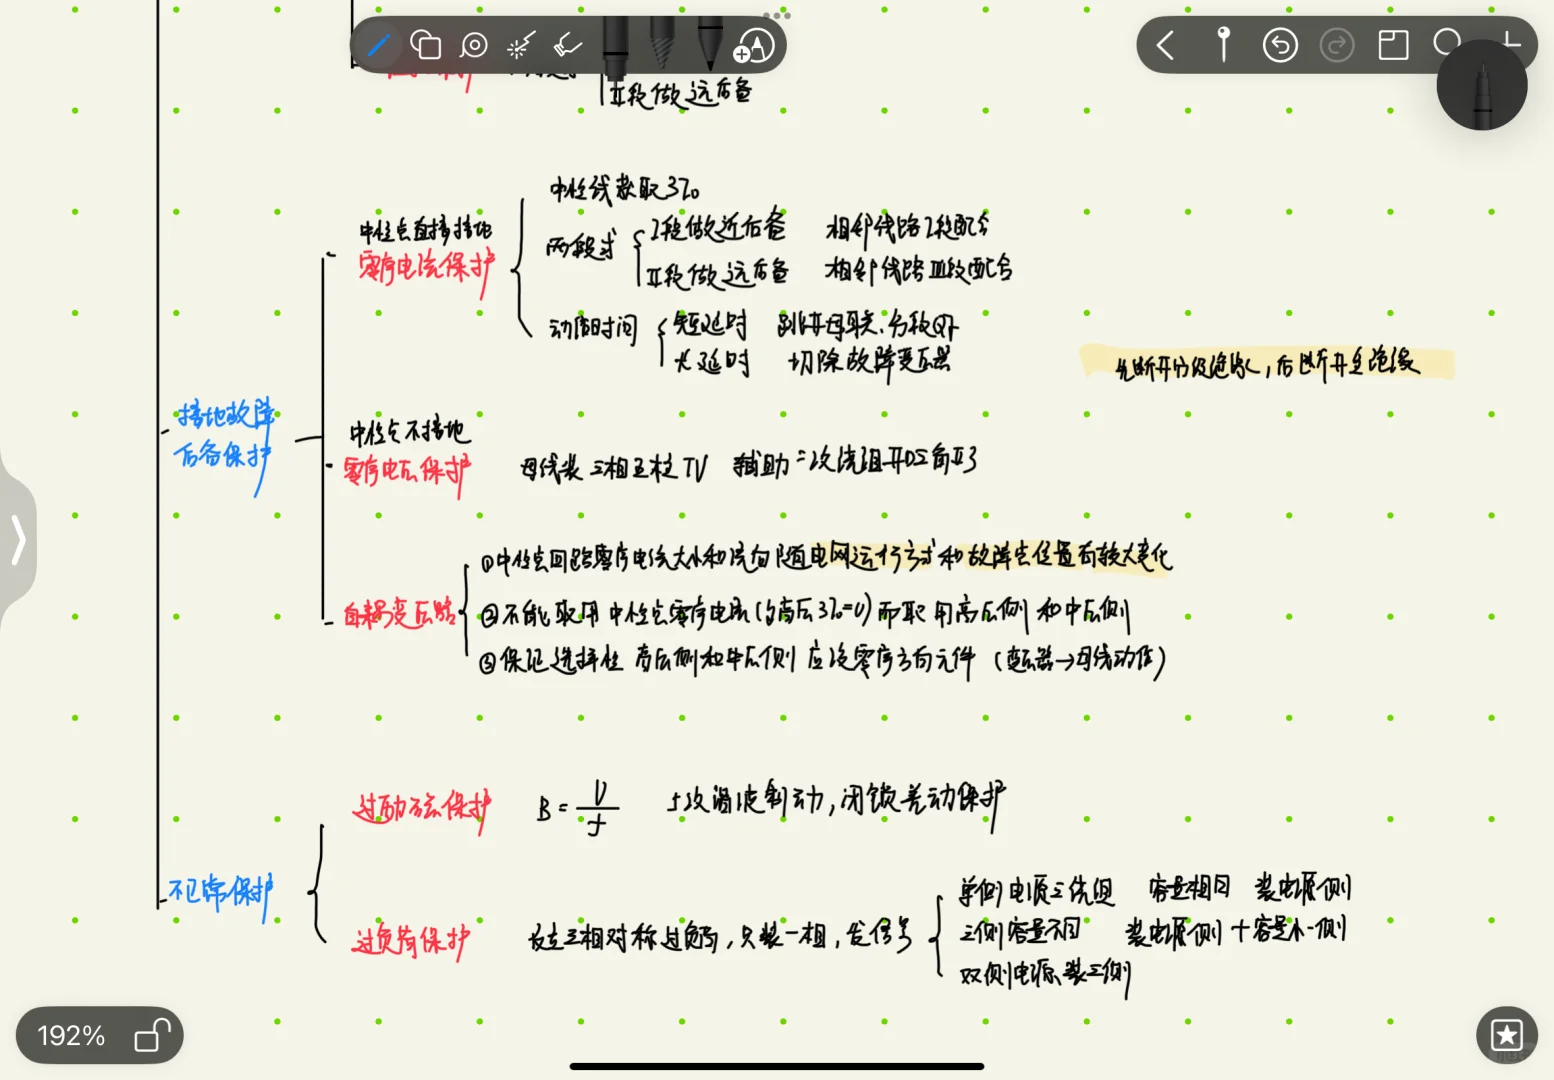 II段做远后备
中性线获取3I₀
中性点直接接地
零序电流保护
两段式
I段做近后备 相邻线路I段配合
II段做远后备 相邻线路III段配合
动作时间
短延时 跳开母联、分段QF
长延时 切除故障变压器
先断开分级绝缘,后断开全绝缘
接地故障
后备保护
中性点不接地
零序电压保护
母线装三相五柱TV 辅助二次绕组开口三角
①中性点回路零序电流大小和流向随电网运行方式和故障点位置有较大变化
自耦变压器
②不能取用中性点零序电流(高压3I₀=0)而取用高压侧和中压侧
③保证选择性 高压侧和中压侧应设零序方向元件(变压器→母线动作)
过励磁保护 B=U/f 5次谐波制动,闭锁差动保护
不正常保护
过负荷保护 反应三相对称过负荷,只装一相,发信号
单侧电源三绕组 容量相同 装电源侧
三侧容量不同 装电源侧+容量小一侧
双侧电源、装三侧
192%